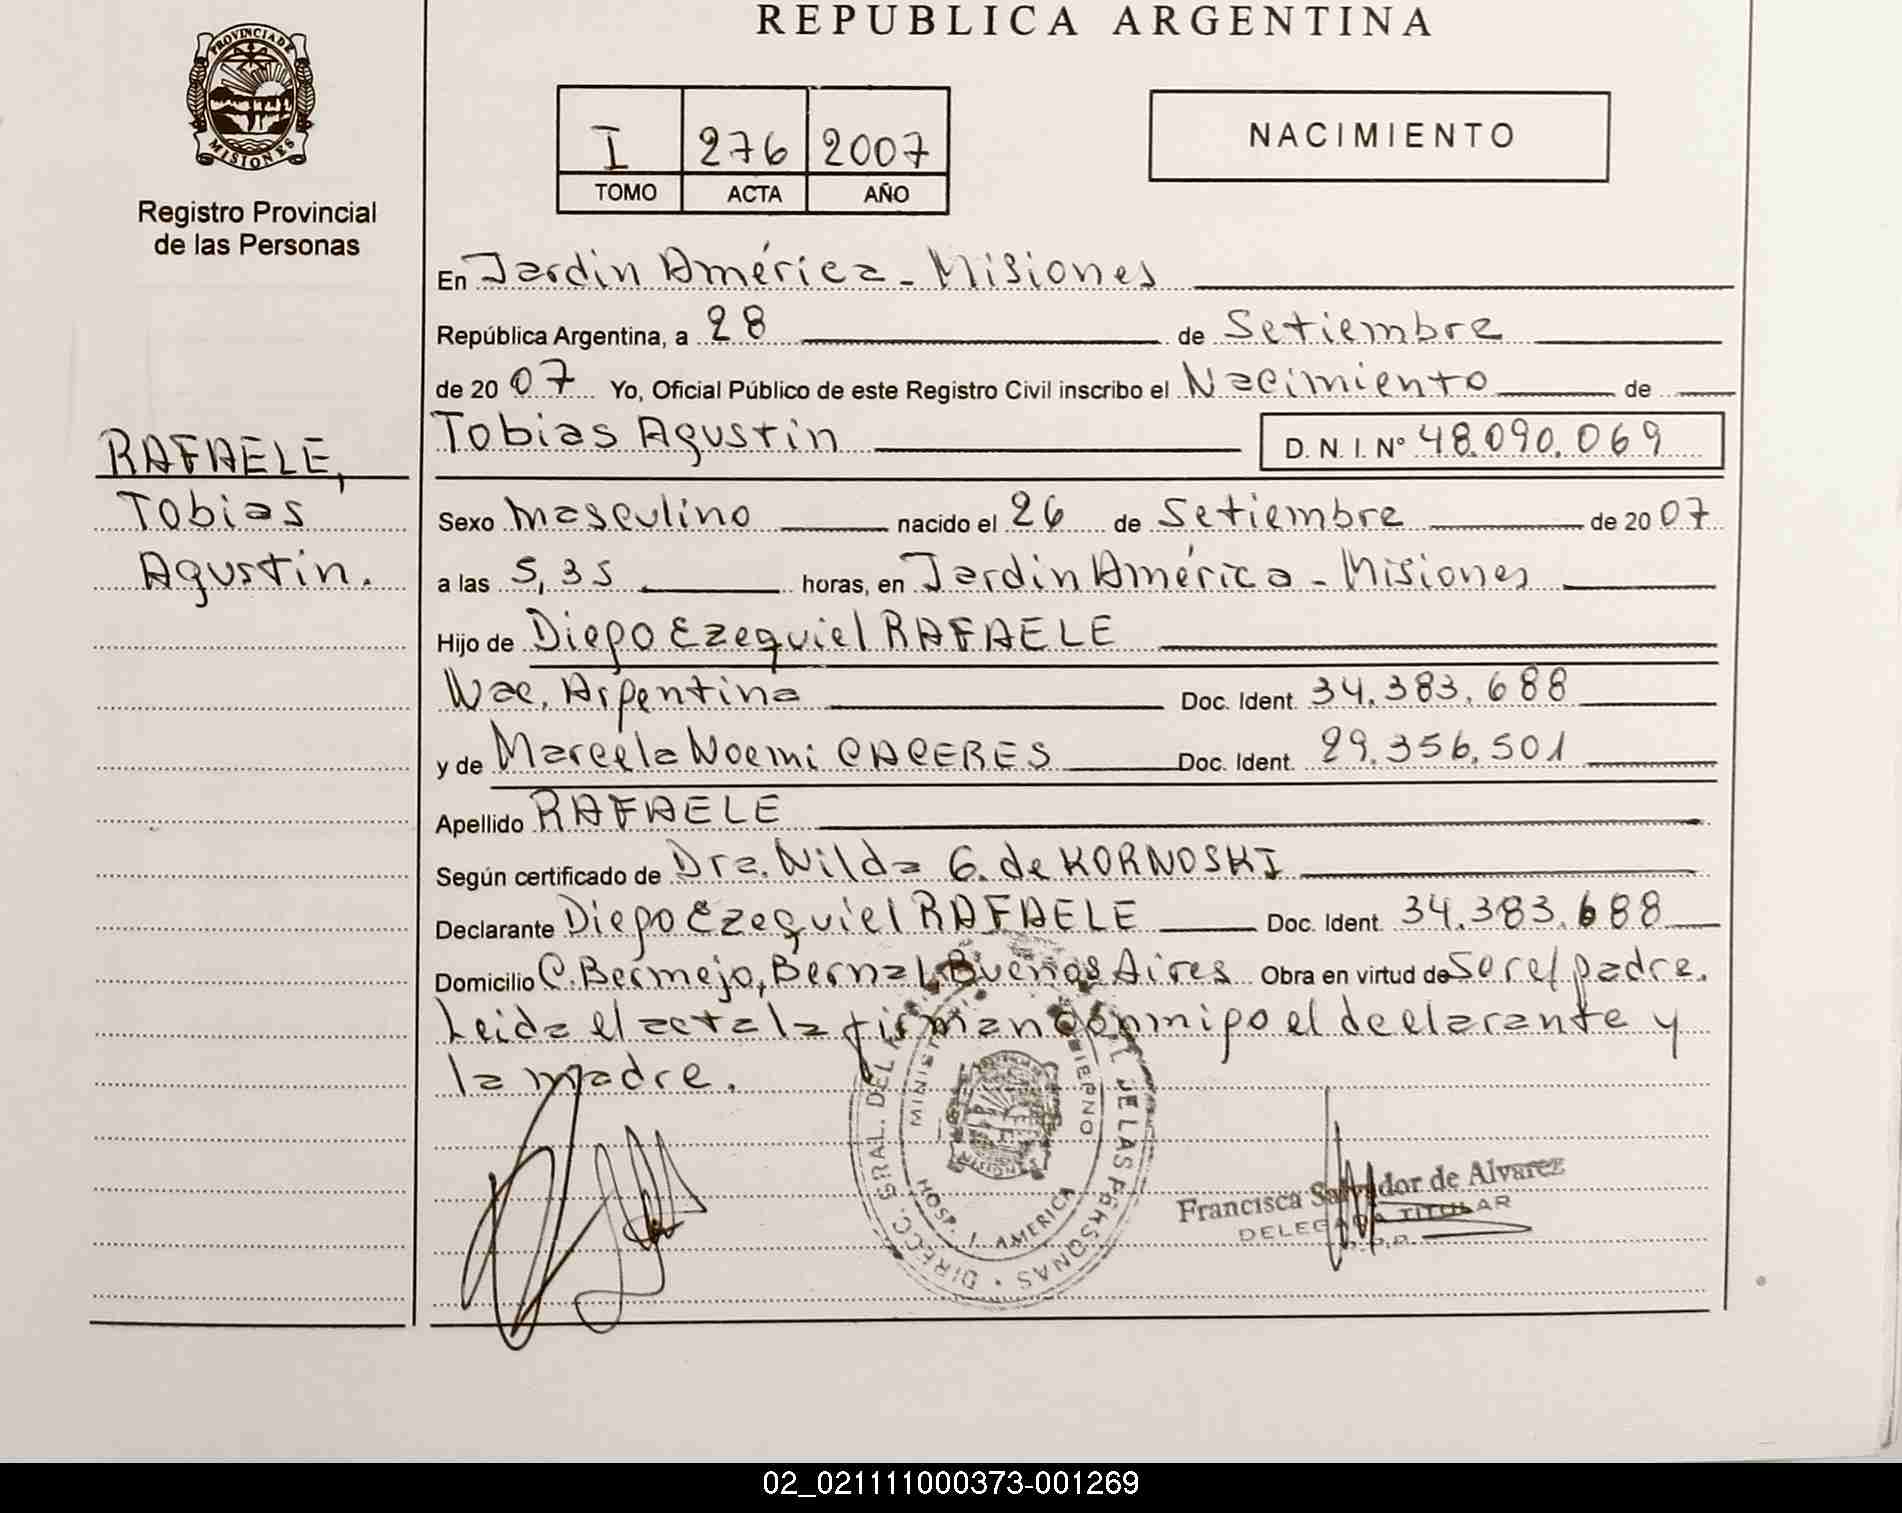 REPUBLICA ARGENTINA
PROVINCIA DE
MISIONES
Registro Provincial
de las Personas
I 276 2007
TOMO ACTA AÑO
NACIMIENTO
En Jardin América - Misiones
República Argentina, a 28 de Setiembre
de 20 07 Yo, Oficial Público de este Registro Civil inscribo el Nacimiento de
Tobias Agustin D. N. I. N° 48.090.069
RAFAELE,
Tobias
Agustin.
Sexo Masculino nacido el 26 de Setiembre de 20 07
a las 5,35 horas, en Jardin América - Misiones
Hijo de Diego Ezequiel RAFAELE
Nac. Argentina Doc. Ident. 34.383.688
y de Marcela Noemi CACERES Doc. Ident. 29.356.501
Apellido RAFAELE
Según certificado de Dra. Nilda G. de KORNOSKI
Declarante Diego Ezequiel RAFAELE Doc. Ident. 34.383.688
Domicilio C. Bermejo, Bernal, Buenos Aires Obra en virtud de Ser el padre.
Leida el acta la firman conmigo el declarante y
la madre.
DIRECC. GRAL. DEL DE LAS PERSONAS
HOSP. J. AMERICA
MISIONES
Francisca Salvador de Alvarez
DELEGADA TITULAR
02_021111000373-001269